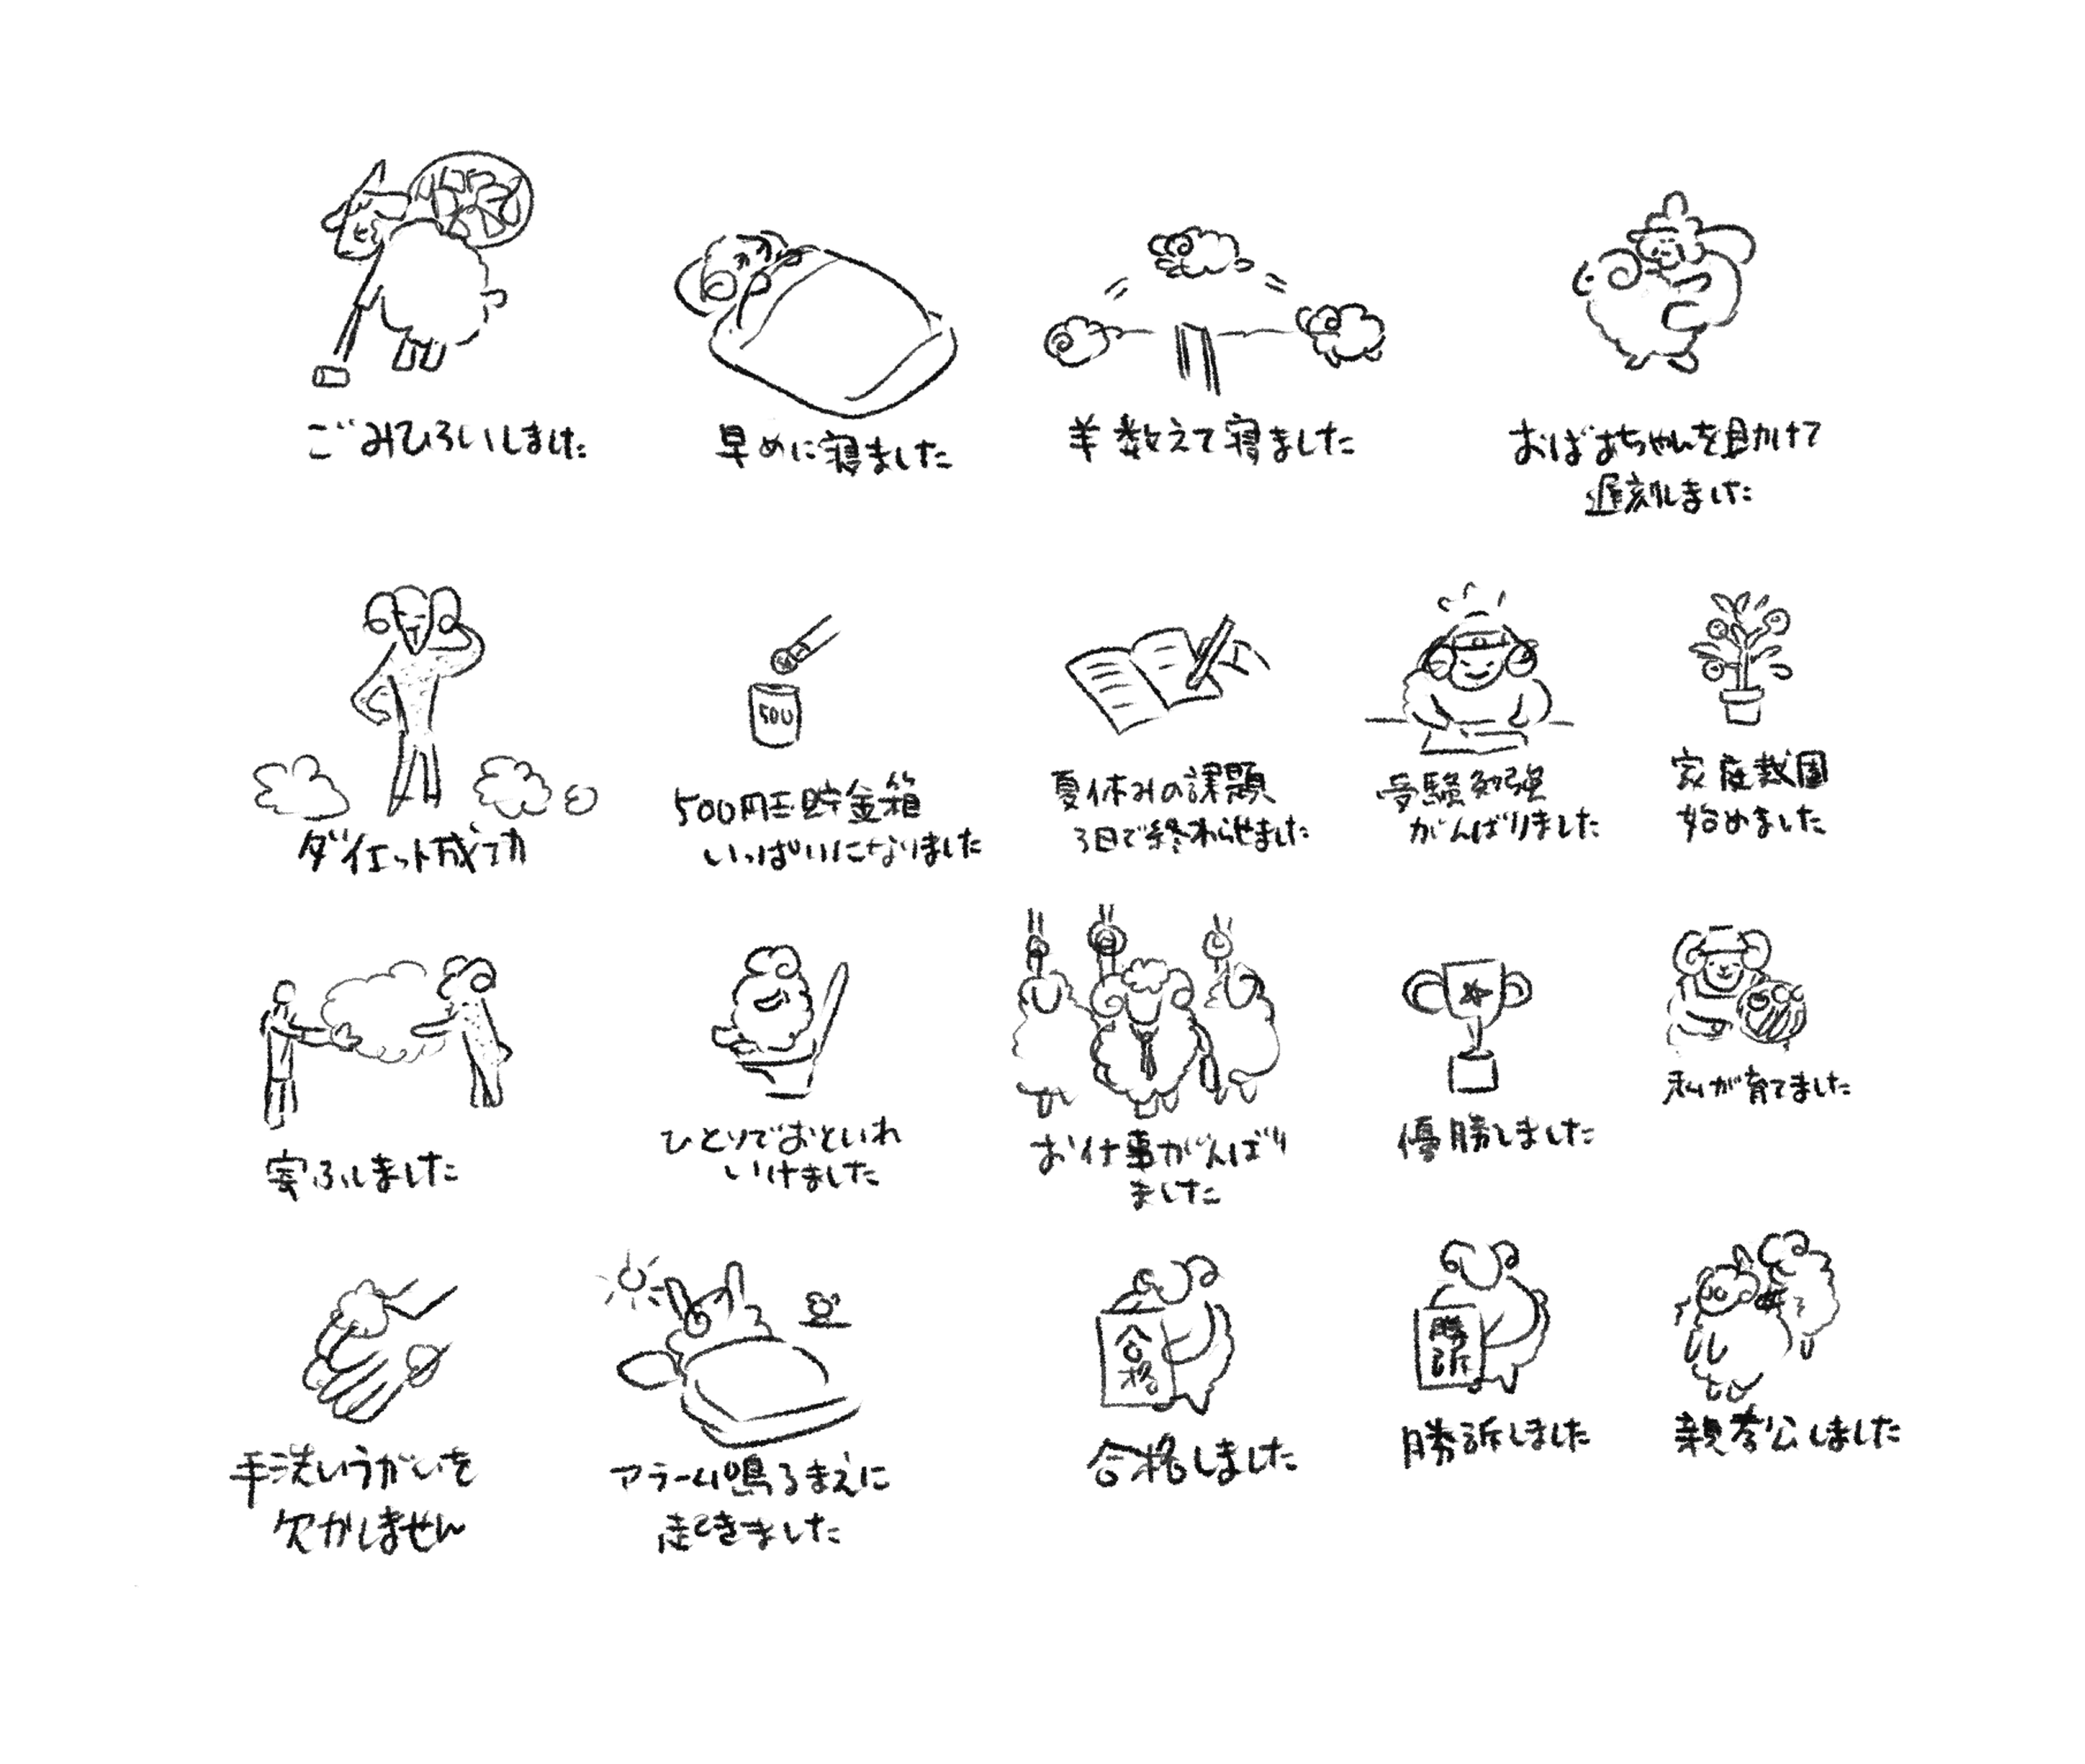 ごみひろいしました
早めに寝ました
羊数えて寝ました
おばあちゃんを助けて
遅刻しました
ダイエット成功
500
500円玉貯金箱
いっぱいになりました
夏休みの課題
3日で終わらせました
受験勉強
がんばりました
家庭栽園
始めました
寄ふしました
ひとりでおといれ
いけました
お仕事がんばり
ました
優勝しました
私が育てました
手洗いうがいを
欠かしません
アラーム鳴るまえに
起きました
合格
合格しました
勝訴
勝訴しました
親孝公しました